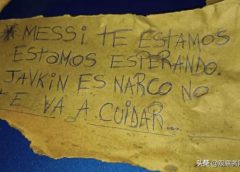 * MESSI TE ESTAMOS
ESTAMOS ESPERANDO.
JAVKIN ES NARCO NO
TE VA A CUIDAR...
头条 @观察者网